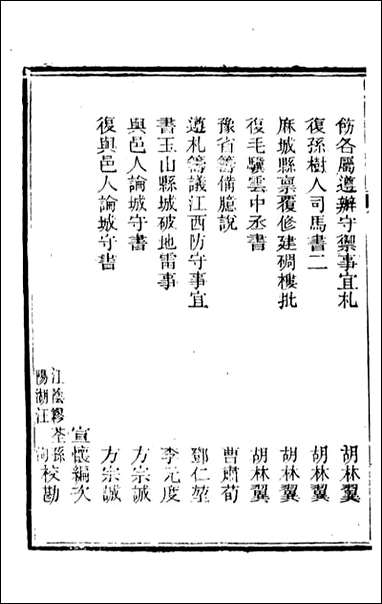 飭各屬遵辦守禦事宜札 胡林翼
復孫樹人司馬書二 胡林翼
麻城縣禀覆修建碉樓批 胡林翼
復毛驥雲中丞書 胡林翼
豫省籌備臆說 曹肅荀
遵札籌議江西防守事宜 鄧仁堃
書玉山縣城破地雷事 李元度
與邑人論城守書 方宗誠
復與邑人論城守書 方宗誠
宣懷編次
江陰繆荃孫
陽湖汪洵校勘